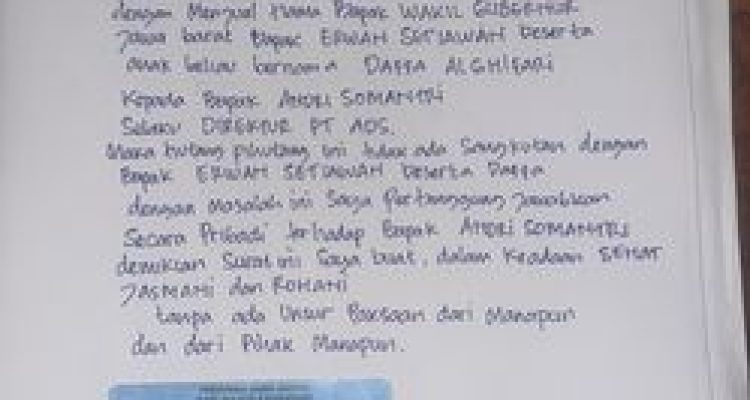 dengan Menjual Nama Bapak WAKIL GUBERNUR
Jawa barat Bapak ERWAN SETIAWAN beserta
anak beliau bernama DAFFA ALGHIFARI
Kepada Bapak ANDRI SOMANTRI
Selaku DIREKTUR PT ADS.
Maka hutang piutang ini tidak ada Sangkutan dengan
Bapak ERWAN SETIAWAN beserta DAFFA
dengan Masalah ini Saya Pertanggung Jawabkan
Secara Pribadi terhadap Bapak ANDRI SOMANTRI
demikian Surat ini Saya buat, dalam keadaan SEHAT
JASMANI dan ROHANI
tanpa ada Unsur Paksaan dari Manapun
dan dari Pihak Manapun.